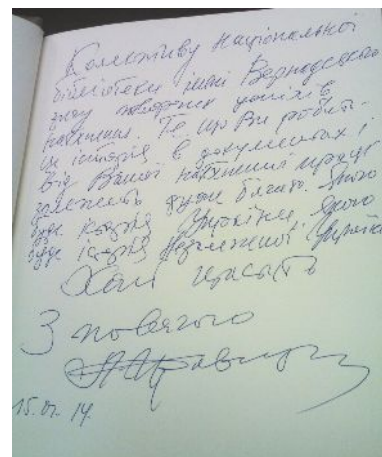 Колективу Національної
бібліотеки імені Вернадського
творчих успіхів
натхнення. Те, що Ви робите -
це історія в документах і
від Вашої натхненної праці
залежить дуже багато. Якою
буде Україна, якою
буде історія Незалежної України
Хай щастить
З повагою
15.01.14.